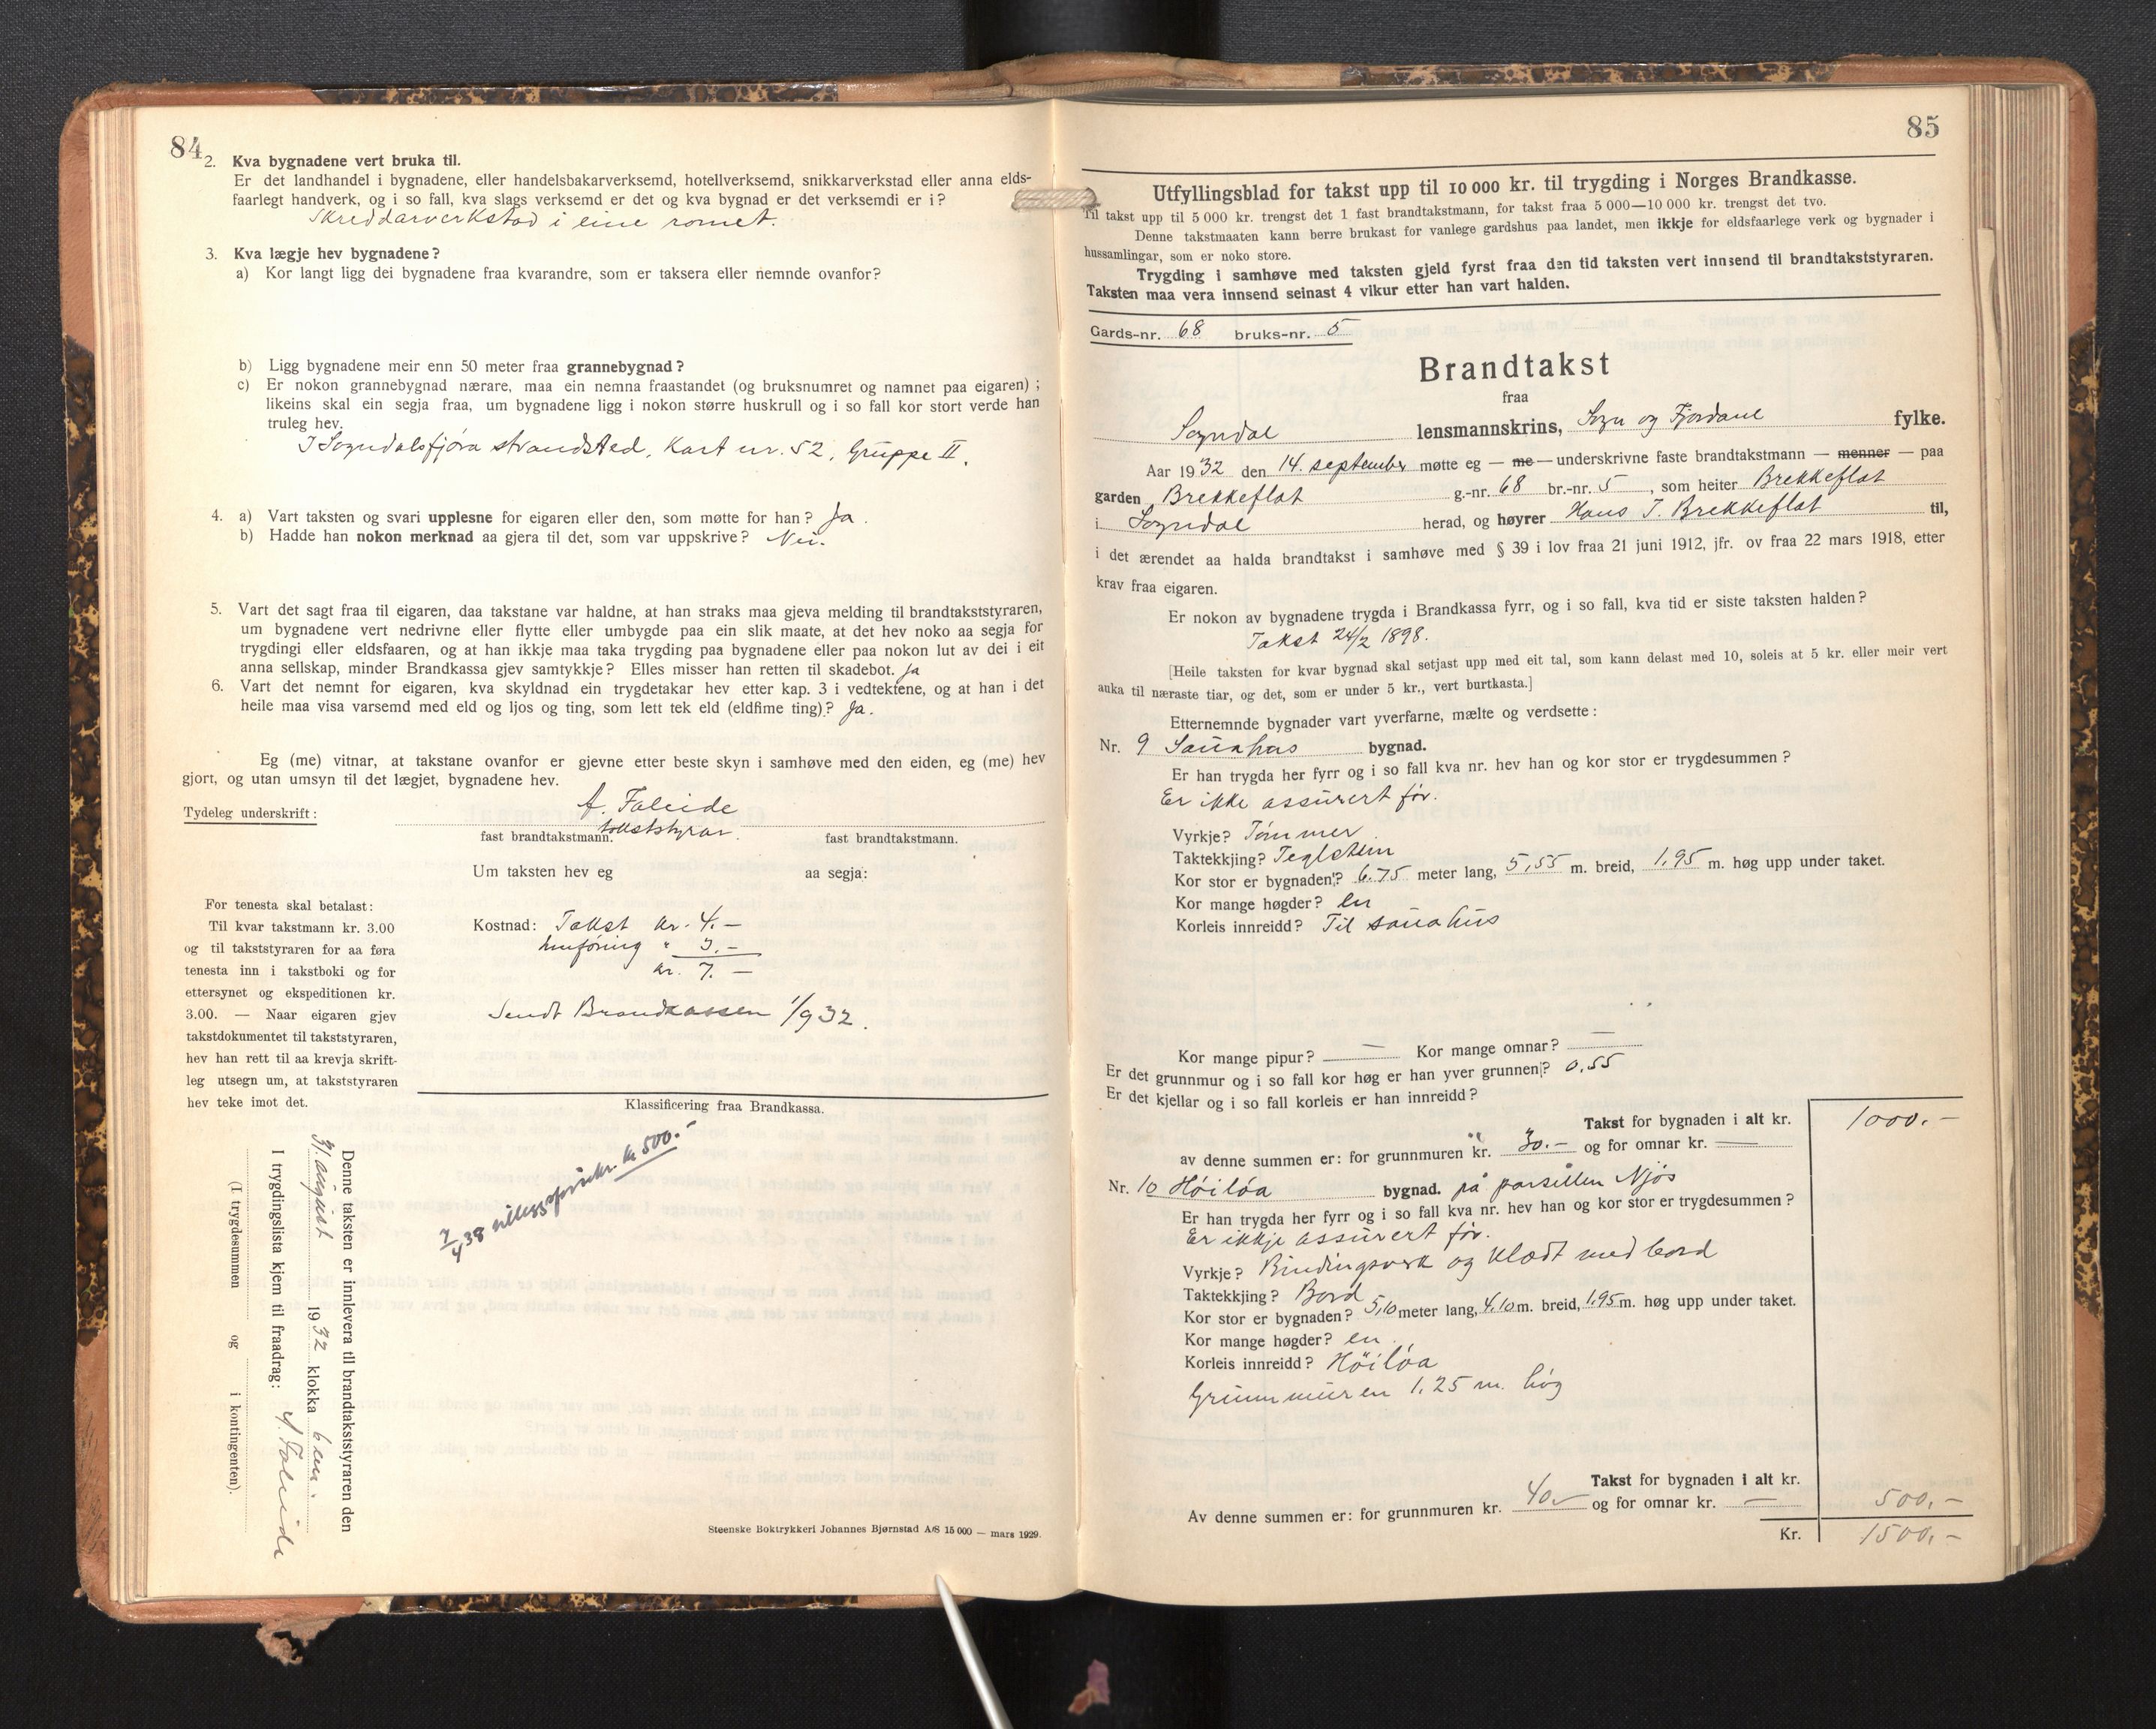 84
2. Kva bygnadene vert bruka til.
Er det landhandel i bygnadene, eller handelsbakarverksemd, hotellverksemd, snikkarverkstad eller anna elds-
faarlegt handverk, og i so fall, kva slags verksemd er det og kva bygnad er det verksemdi er i?
Skreddarverkstad i eine romet.
3. Kva lægje hev bygnadene?
a) Kor langt ligg dei bygnadene fraa kvarandre, som er taksera eller nemnde ovanfor?
b) Ligg bygnadene meir enn 50 meter fraa grannebygnad?
c) Er nokon grannebygnad nærare, maa ein nemna fraastandet (og bruksnumret og namnet paa eigaren);
likeins skal ein segja fraa, um bygnadene ligg i nokon større huskrull og i so fall kor stort verde han
truleg hev.
I Sogndalsfjøra strandsted, Kart nr. 52, Gruppe II.
4. a) Vart taksten og svari upplesne for eigaren eller den, som møtte for han? Ja.
b) Hadde han nokon merknad aa gjera til det, som var uppskrive? Nei.
5. Vart det sagt fraa til eigaren, daa takstane var haldne, at han straks maa gjeva melding til brandtakststyraren,
um bygnadene vert nedrivne eller flytte eller umbygde paa ein slik maate, at det hev noko aa segja for
trygdingi eller eldsfaaren, og at han ikkje maa taka trygding paa bygnadene eller paa nokon lut av dei i eit
anna sellskap, minder Brandkassa gjev samtykkje? Elles misser han retten til skadebot. Ja
6. Vart det nemnt for eigaren, kva skyldnad ein trygdetakar hev etter kap. 3 i vedtektene, og at han i det
heile maa visa varsemd med eld og ljos og ting, som lett tek eld (eldfime ting)? Ja.
Eg (me) vitnar, at takstane ovanfor er gjevne etter beste skyn i samhøve med den eiden, eg (me) hev
gjort, og utan umsyn til det lægjet, bygnadene hev.
Tydeleg underskrift:
A. Faleide
fast brandtakstmann. takststyrar. fast brandtakstmann.
Um taksten hev eg aa segja:
For tenesta skal betalast:
Til kvar takstmann kr. 3.00
og til takststyraren for aa føra
tenesta inn i takstboki og for
ettersynet og ekspeditionen kr.
3.00. — Naar eigaren gjev
takstdokumentet til takststyraren,
hev han rett til aa krevja skrift-
leg utsegn um, at takststyraren
hev teke imot det.
Kostnad: Takst kr. 4.-
Innføring " 3.-
kr. 7.-
Sendt Brandkassen 1/9 32.
Klassificering fraa Brandkassa.
7/4 38 kr. 500.-
Denne taksten er innlevera til brandtakststyraren den
31. august 1932 klokka
I trygdingslista kjem til fraadrag:
(I. trygdesummen og i kontingenten).
A. Faleide
Steenske Boktrykkeri Johannes Bjørnstad A/S 15 000 — mars 1929.
85
Utfyllingsblad for takst upp til 10 000 kr. til trygding i Norges Brandkasse.
Til takst upp til 5 000 kr. trengst det 1 fast brandtakstmann, for takst fraa 5 000—10 000 kr. trengst det tvo.
Denne takstmaaten kann berre brukast for vanlege gardshus paa landet, men ikkje for eldsfaarlege verk og bygnader i
hussamlingar, som er noko store.
Trygding i samhøve med taksten gjeld fyrst fraa den tid taksten vert innsend til brandtakststyraren.
Taksten maa vera innsend seinast 4 vikur etter han vart halden.
Gards-nr. 68 bruks-nr. 5
Brandtakst
fraa
Sogndal lensmannskrins, Sogn og Fjordane fylke.
Aar 1932 den 14. september møtte eg — me — underskrivne faste brandtakstmann — menner — paa
garden Brekkeflat g.-nr. 68 br.-nr. 5, som heiter Brekkeflat
i Sogndal herad, og høyrer Hans J. Brekkeflat til,
i det ærendet aa halda brandtakst i samhøve med § 39 i lov fraa 21 juni 1912, jfr. ov fraa 22 mars 1918, etter
krav fraa eigaren.
Er nokon av bygnadene trygda i Brandkassa fyrr, og i so fall, kva tid er siste taksten halden?
Takst 24/2 1898.
[Heile taksten for kvar bygnad skal setjast upp med eit tal, som kann delast med 10, soleis at 5 kr. eller meir vert
auka til næraste tiar, og det, som er under 5 kr., vert burtkasta.]
Etternemnde bygnader vart yverfarne, mælte og verdsette:
Nr. 9 Sauahus bygnad.
Er han trygda her fyrr og i so fall kva nr. hev han og kor stor er trygdesummen?
Er ikke assurert før.
Vyrkje? Tømmer
Taktekkjing? Teglstein
Kor stor er bygnaden? 6.75 meter lang, 5,55 m. breid, 1,95 m. høg upp under taket.
Kor mange høgder? en
Korleis innreidd? Til sauahus
Kor mange pipur? — Kor mange omnar? —
Er det grunnmur og i so fall kor høg er han yver grunnen? 0,55
Er det kjellar og i so fall korleis er han innreidd?
Takst for bygnaden i alt kr. 1000.-
av denne summen er: for grunnmuren kr. 30.- og for omnar kr. —
Nr. 10 Høiløa bygnad. på parsellen Njøs
Er han trygda her fyrr og i so fall kva nr. hev han og kor stor er trygdesummen?
Er ikkje assurert før.
Vyrkje? Bindingsverk og klædt med bord
Taktekkjing? Bord
Kor stor er bygnaden? 5,10 meter lang, 4.10 m. breid, 1,95 m. høg upp under taket.
Kor mange høgder? en
Korleis innreidd? Høiløa
Grunnmuren 1.25 m. høg
Takst for bygnaden i alt kr. 500.-
Av denne summen er: for grunnmuren kr. 40.- og for omnar kr. —
Kr. 1500.-